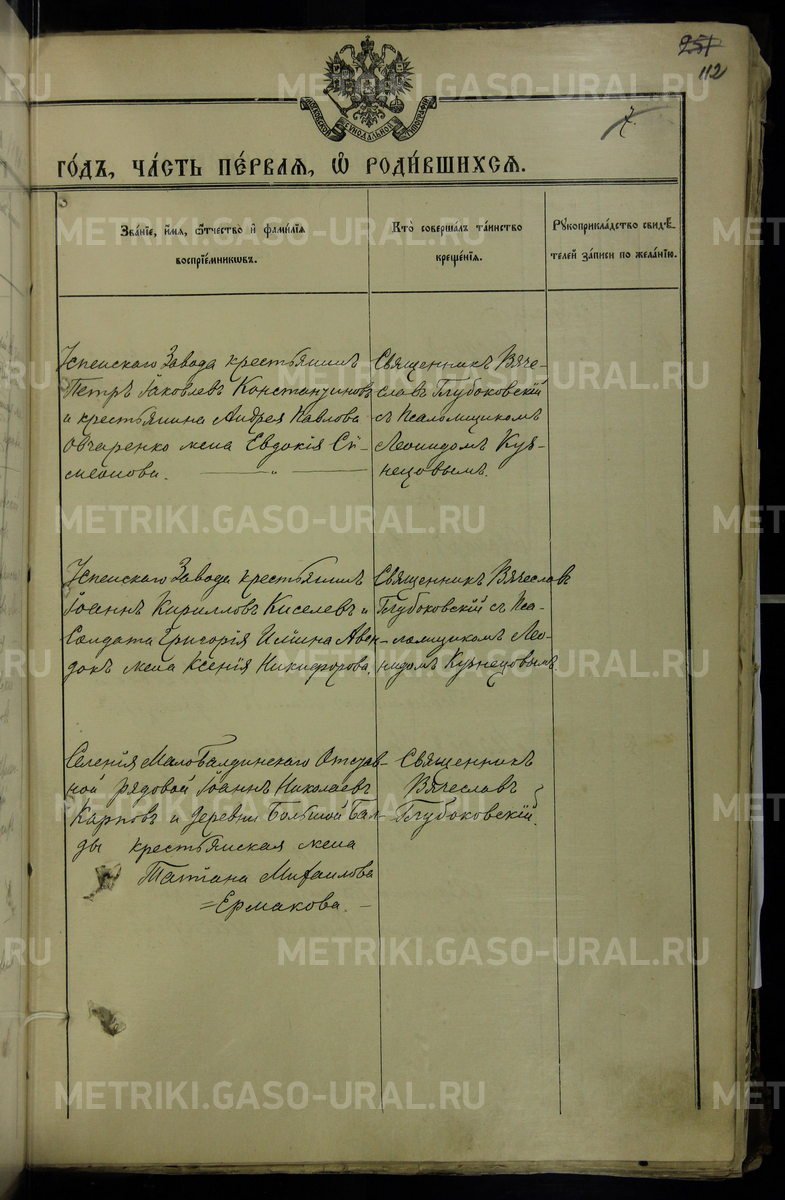 251
112
МОСКОВСКОЙ СѴНОДАЛЬНОЙ ТИПОГРАФІИ
7.
ГО́ДЪ, ЧА́СТЬ ПЕ́РВАѦ, Ѽ РОДИ́ВШИХСѦ.
Зва́нїе, и́мѧ, ѻ҆́тчество и҆ фами́лїѧ
воспрїе́мникѡвъ.
Кто̀ соверша́лъ та́инство
креще́нїѧ.
Рꙋкоприкла́дство свидѣ́-
телей за́писи по жела́нїю.
Успенскаго Завода крестьянинъ
Петръ Іаковлевъ Константиновъ
и крестьянина Андрея Павлова
Овчаренко жена Евдокія Си-
меонова. — „ —
Священникъ Вяче-
славъ Глубоковскій
съ Псаломщикомъ
Леонидомъ Куз-
нецовымъ.
Успенскаго Завода крестьянинъ
Іоаннъ Кирилловъ Киселевъ и
Солдата Григорія Илiина Авен-
докъ жена Ксенія Никифорова.
Священникъ Вячеславъ
Глубоковскій съ Пса-
ломщикомъ Лео-
нидомъ Кузнецовымъ
Селенія Мало Балдинскаго Отстав-
ной рядовой Іоаннъ Николаевъ
Карповъ и деревни Большой Бал-
ды крестьянская жена
Татіана Михаилова
=Ермакова. —
Священникъ
Вячеславъ
Глубоковскій.
METRIKI.GASO-URAL.RU